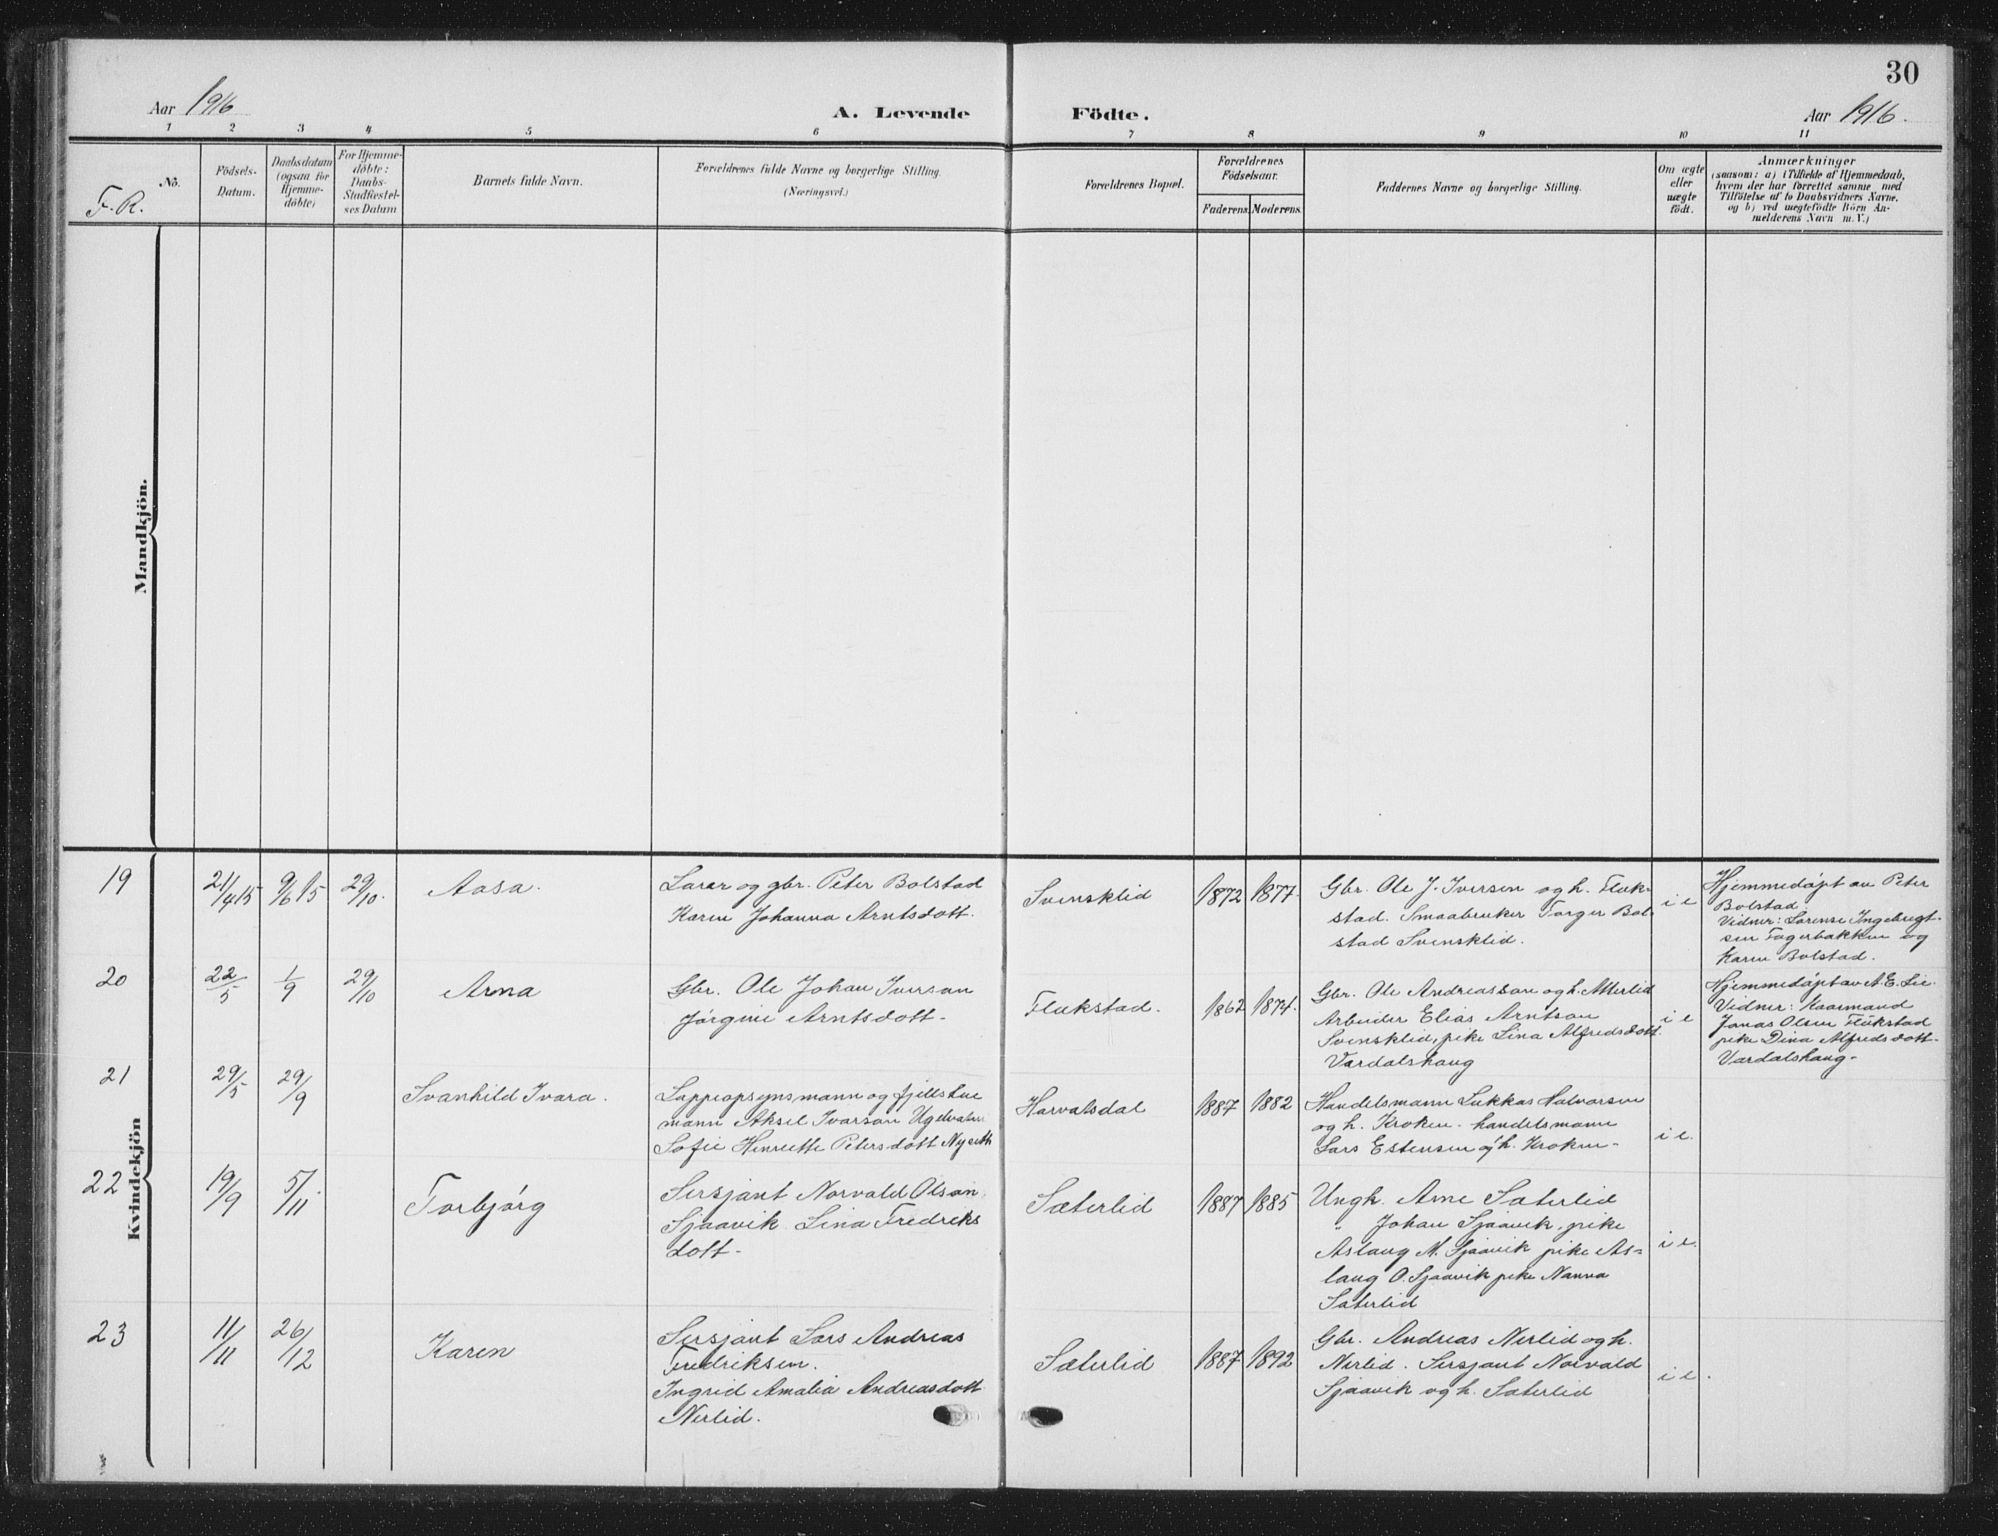 30
Aar 1916
A. Levende Födte.
Aar 1916.
1 2 3 4 5 6 7 8 9 10 11
F. R.
No.
Födsels-
Datum.
Daabsdatum
(ogsaa for
Hjemme-
döbte)
For Hjemme-
döbte:
Daabs-
Stadfæstel-
ses Datum
Barnets fulde Navn.
Forældrenes fulde Navne og borgerlige Stilling.
(Næringsvei.)
Forældrenes Bopæl.
Forældrenes
Födselsaar.
Faderens. Moderens.
Faddernes Navne og borgerlige Stilling.
Om ægte
eller
uægte
födt.
Anmærkninger
(saasom: a) i Tilfælde af Hjemmedaab,
hvem der har forrettet samme, med
Tilföielse af to Daabsvidners Navne.
og b) ved uægtefödte Börn An-
melderens Navn m. V.)
Mandkjön.
Kvindekjön
19
21/4 15
9/6 15
29/10.
Aasa.
Lærer og gbr. Peter Bolstad
Karen Johanna Arntsdott.
Svensklid
1872 1877.
Gbr. Ole J. Iversen og h. Fluk-
stad. Smaabruker Torger Bol-
stad Svensklid.
i e
Hjemmedøpt av Peter
Bolstad.
Vidner: Lorense Ingebrigt-
sen Fagerbakken og
Karen Bolstad.
20
22/5
1/9
29/10
Arna
Gbr. Ole Johan Iversen
Jørgine Arntsdott-
Flukstad.
1862 1874.
Gbr. Ole Andreassen og h. Atterlid
Arbeider Elias Arntsen
Svensklid, pike Lina Alfredsdott.
Vardalshaug
i e
Hjemmedøpt av A. E. Lie.
Vidner: Kaarmand
Jonas Olsen Flukstad
pike Dina Alfredsdott-
Vardalshaug-
21
29/5
29/9
Svanhild Ivara.
Lappeopsynsmann og fjellstue
mann Aksel Ivarson Ugelvatn
Sofie Henriette Petersdott Nyseth
Harvalsdal
1887 1882
Handelsmann Lukkas Halvorsen
og h. Kroken. handelsmann
Lars Estensen og h. Kroken-
i e.
22
19/9
5/11.
Torbjørg
Sersjant Norvald Olsen
Sjaavik. Lina Fredriks
dott-
Sæterlid
1887 1885
Ungk. Arne Sæterlid
" Johan Sjaavik, pike
Aslaug M. Sjaavik pike As-
laug O. Sjaavik pike Nanna
Sæterlid
i e.
23
11/11
26/12
Karen
Sersjant Lars Andreas
Fredriksen.
Ingrid Amalia Andreasdott
Nerlid.
Sæterlid
1887 1892
Gbr. Andreas Nerlid og h.
Nerlid. Sersjant Norvald
Sjaavik og h. Sæterlid
i e.